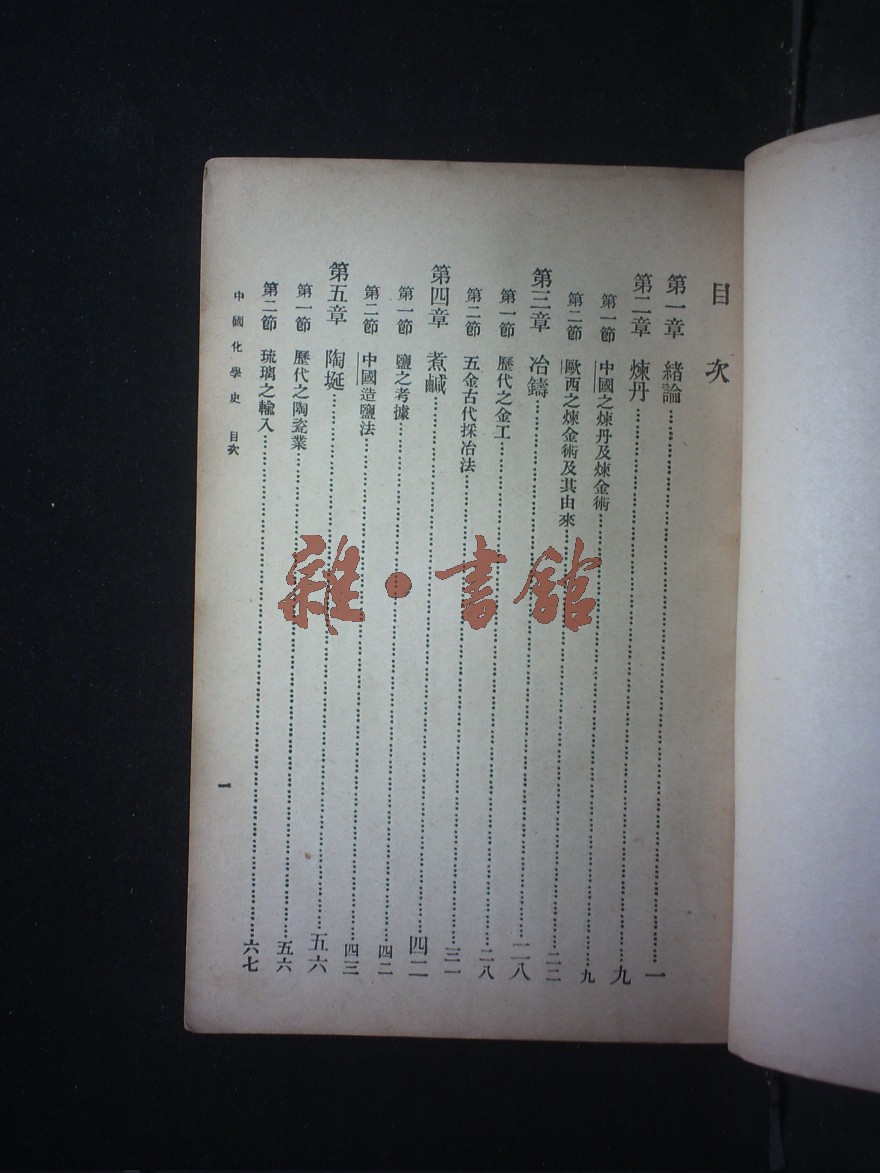 目次
第一章 緒論 一
第二章 煉丹 九
第一節 中國之煉丹及煉金術 九
第二節 歐西之煉金術及其由來 二二
第三章 冶鑄 二八
第一節 歷代之金工 二八
第二節 五金古代採冶法 三一
第四章 煮鹹 四二
第一節 鹽之考據 四二
第二節 中國造鹽法 四三
第五章 陶埏 五六
第一節 歷代之陶瓷業 五六
第二節 琉璃之輸入 六七
中國化學史 目次 一
雜·書館